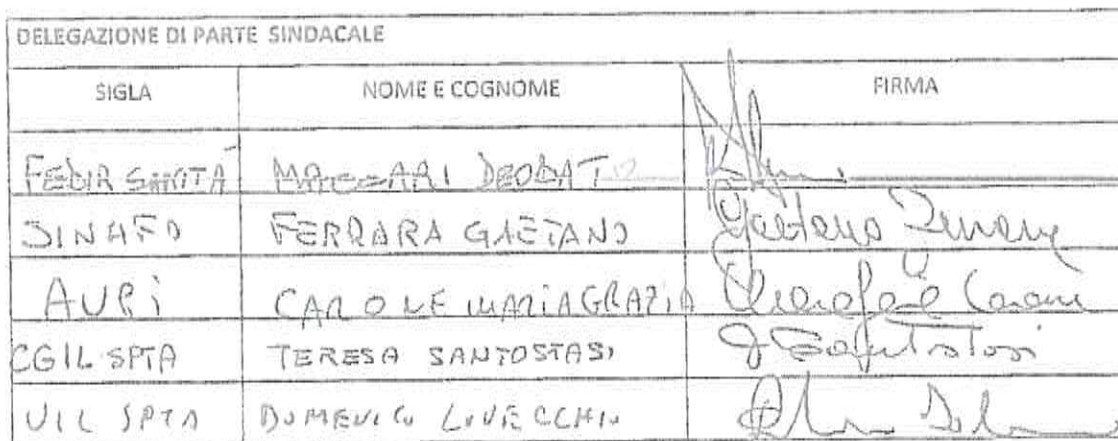 DELEGAZIONE DI PARTE SINDACALE
SIGLA NOME E COGNOME FIRMA
FEDIR SANITÀ MACCARI DEODATO
SINAFO FERRARA GAETANO Gaetano Ferrara
AUPI CAROLE MARIAGRAZIA
CGIL SPTA TERESA SANTOSTASI T Santostasi
UIL SPTA DOMENICO LOVECCHIO